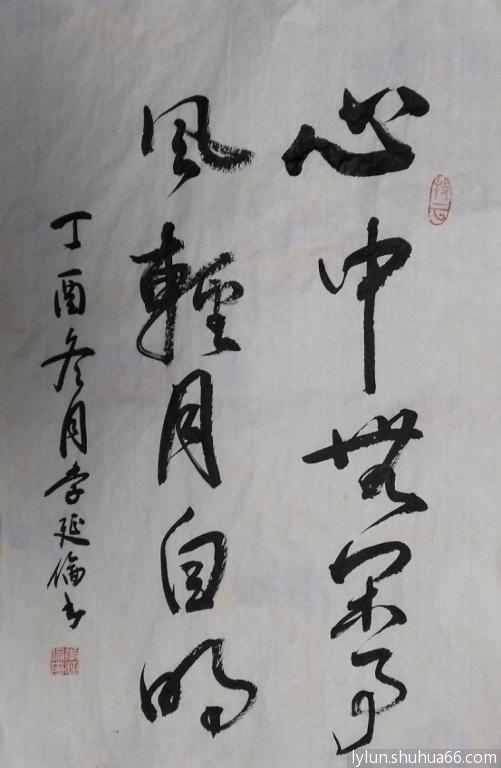 心中無閑事
風輕月自明
丁酉冬月李延倫书
lylun.shuhua66.com